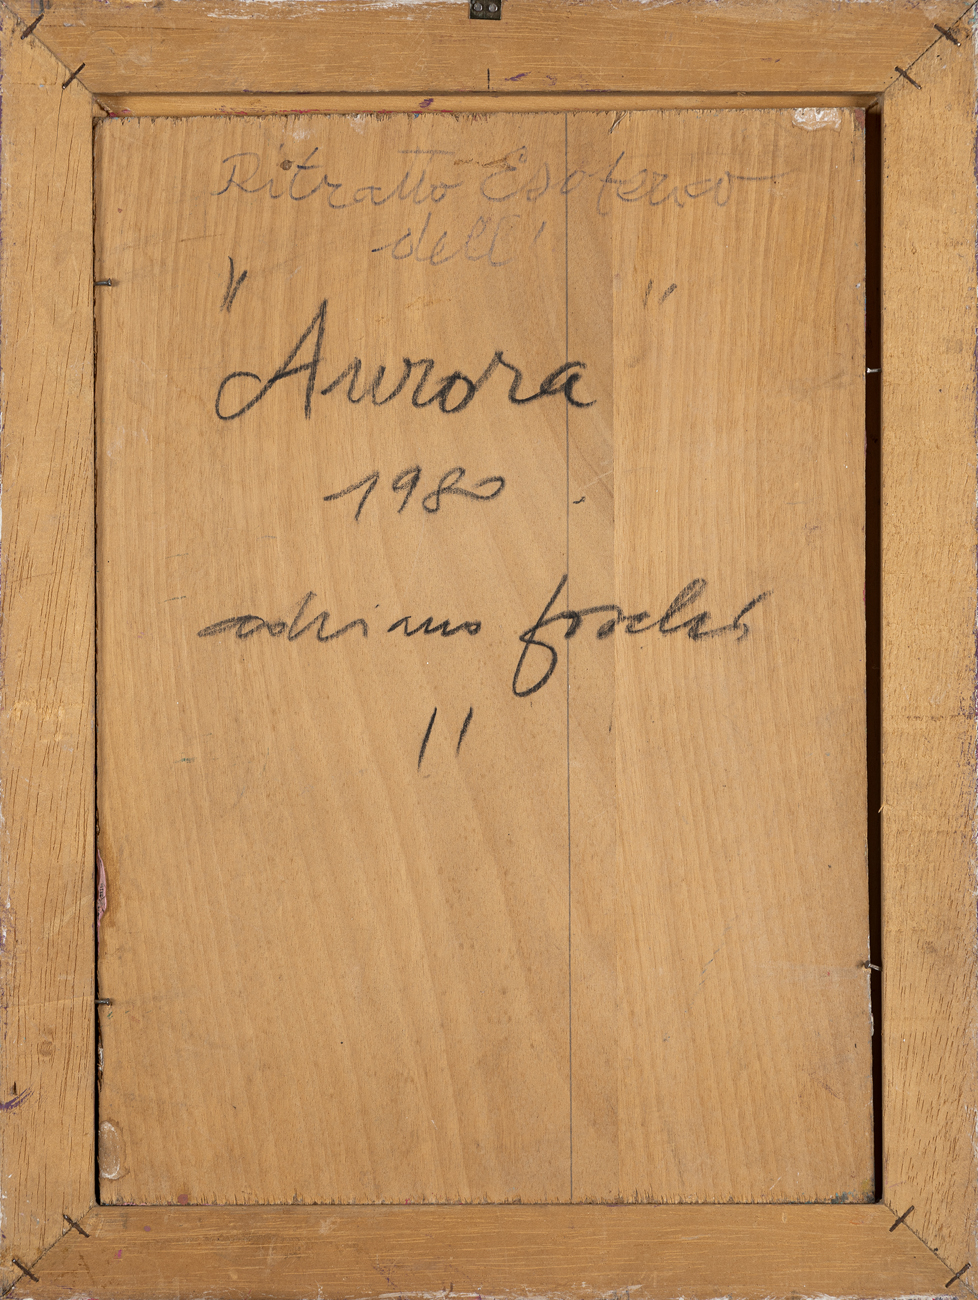 Ritratto Esoterico
dell'
" "
Aurora
1980
adriano foschi
"